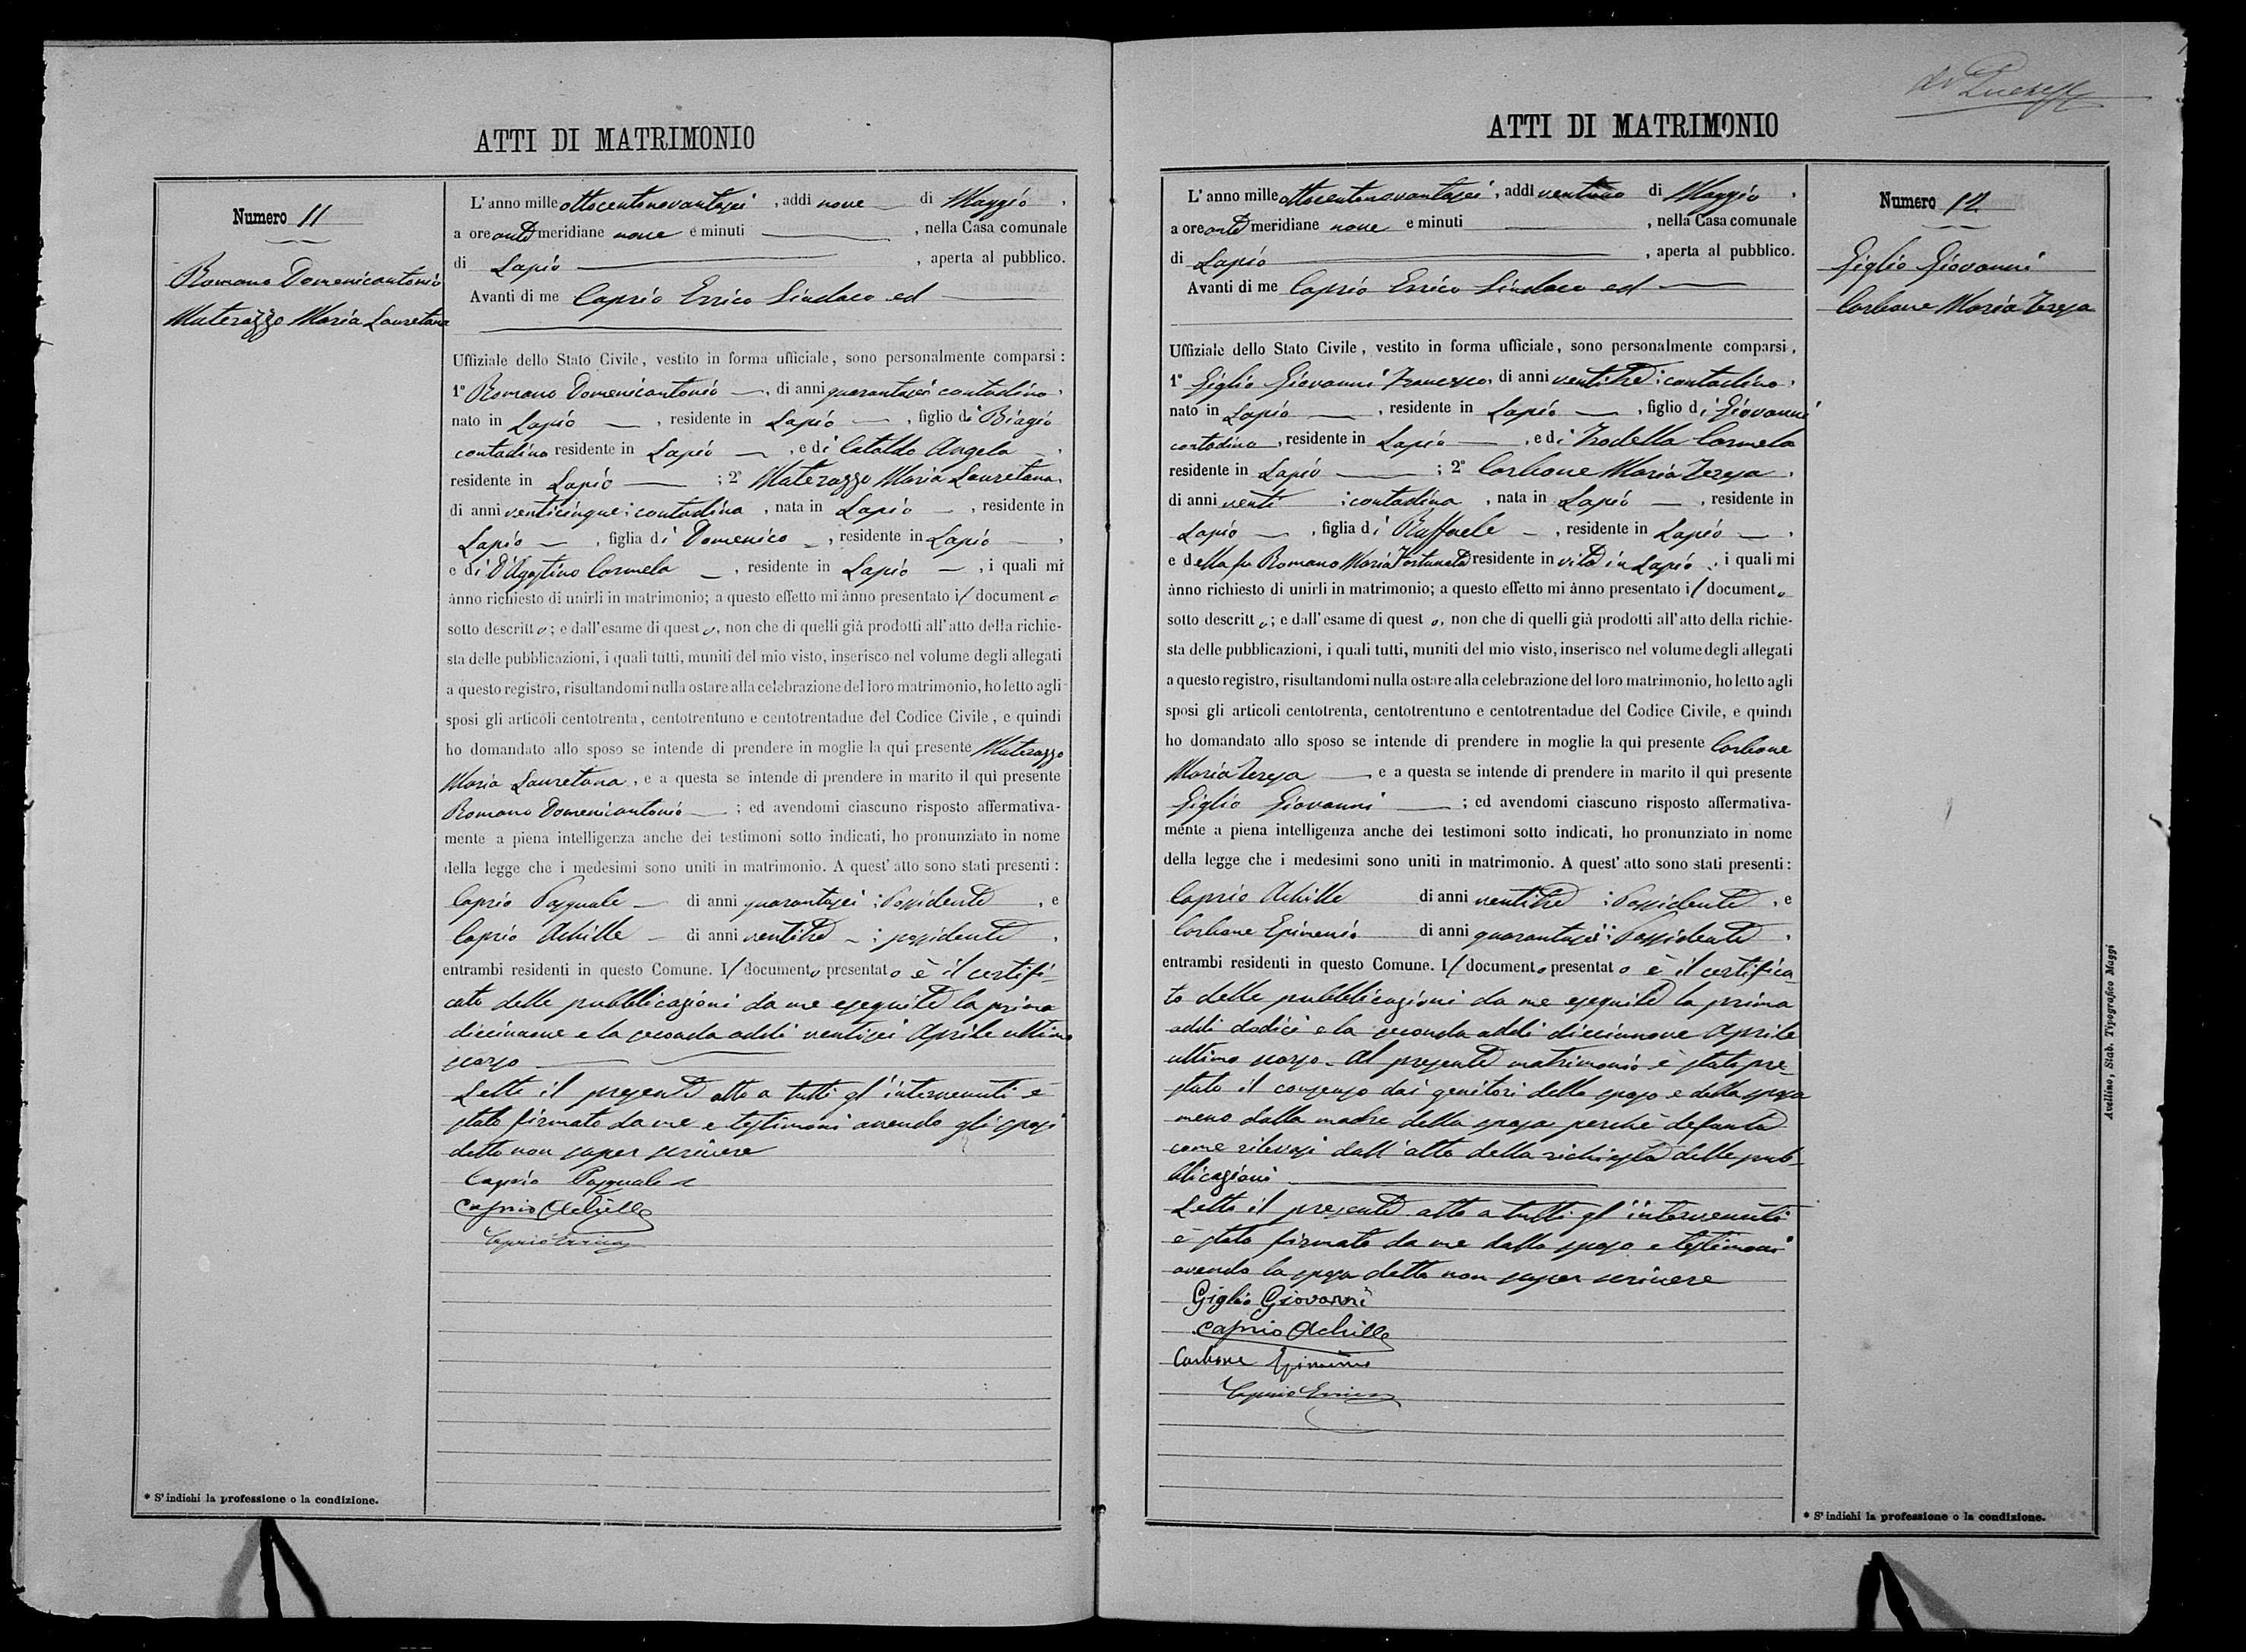 ATTI DI MATRIMONIO
Numero 11
Romano Domenicantonio
Materazzo Maria Lauretana
L'anno mille ottocentonovantasei, addi nove di Maggio,
a ore anti meridiane nove e minuti, nella Casa comunale
di Lapio, aperta al pubblico.
Avanti di me Caprio Errico Sindaco ed
Uffiziale dello Stato Civile, vestito in forma ufficiale, sono personalmente comparsi:
1° Romano Domenicantonio, di anni quarantasei contadino,
nato in Lapio, residente in Lapio, figlio di Biagio
contadino residente in Lapio, e di Cataldo Angela,
residente in Lapio; 2° Materazzo Maria Lauretana,
di anni venticinque: contadina, nata in Lapio, residente in
Lapio, figlia di Domenico, residente in Lapio,
e di D'Agostino Carmela, residente in Lapio, i quali mi
ànno richiesto di unirli in matrimonio; a questo effetto mi ànno presentato il documento
sotto descritto; e dall'esame di questo, non che di quelli già prodotti all'atto della richie-
sta delle pubblicazioni, i quali tutti, muniti del mio visto, inserisco nel volume degli allegati
a questo registro, risultandomi nulla ostare alla celebrazione del loro matrimonio, ho letto agli
sposi gli articoli centotrenta, centotrentuno e centotrentadue del Codice Civile, e quindi
ho domandato allo sposo se intende di prendere in moglie la qui presente Materazzo
Maria Lauretana, e a questa se intende di prendere in marito il qui presente
Romano Domenicantonio; ed avendomi ciascuno risposto affermativa-
mente a piena intelligenza anche dei testimoni sotto indicati, ho pronunziato in nome
della legge che i medesimi sono uniti in matrimonio. A quest'atto sono stati presenti:
Caprio Pasquale di anni quarantasei: Possidente, e
Caprio Achille di anni ventitre: possidente,
entrambi residenti in questo Comune. Il documento presentato è il certifi-
cato delle pubblicazioni da me eseguite la prima
diciannove e la seconda addi ventisei Aprile ultimo
scorso
Letto il presente atto a tutti gl'intervenuti è
stato firmato da me e testimoni avendo gli sposi
detto non saper scrivere
Caprio Pasquale
Caprio Achille
Caprio Errico
* S'indichi la professione o la condizione.
ATTI DI MATRIMONIO
Numero 12
Giglio Giovanni
Carbone Maria Teresa
L'anno mille ottocentonovantasei, addi ventuno di Maggio,
a ore anti meridiane nove e minuti, nella Casa comunale
di Lapio, aperta al pubblico.
Avanti di me Caprio Errico Sindaco ed
Uffiziale dello Stato Civile, vestito in forma ufficiale, sono personalmente comparsi,
1° Giglio Giovanni Francesco, di anni ventitre: contadino,
nato in Lapio, residente in Lapio, figlio di Giovanni
contadino, residente in Lapio, e di Trodella Carmela
residente in Lapio; 2° Carbone Maria Teresa,
di anni venti: contadina, nata in Lapio, residente in
Lapio, figlia di Raffaele, residente in Lapio,
e della fu Romano Maria Fortunata residente in vita in Lapio, i quali mi
ànno richiesto di unirli in matrimonio; a questo effetto mi ànno presentato il documento
sotto descritto; e dall'esame di questo, non che di quelli già prodotti all'atto della richie-
sta delle pubblicazioni, i quali tutti, muniti del mio visto, inserisco nel volume degli allegati
a questo registro, risultandomi nulla ostare alla celebrazione del loro matrimonio, ho letto agli
sposi gli articoli centotrenta, centotrentuno e centotrentadue del Codice Civile, e quindi
ho domandato allo sposo se intende di prendere in moglie la qui presente Carbone
Maria Teresa e a questa se intende di prendere in marito il qui presente
Giglio Giovanni; ed avendomi ciascuno risposto affermativa-
mente a piena intelligenza anche dei testimoni sotto indicati, ho pronunziato in nome
della legge che i medesimi sono uniti in matrimonio. A quest'atto sono stati presenti:
Caprio Achille di anni ventitre: Possidente, e
Carbone Epimenio di anni quarantasei: Possidente,
entrambi residenti in questo Comune. Il documento presentato è il certifica
to delle pubblicazioni da me eseguite la prima
addi dodici e la seconda addi diciannove Aprile
ultimo scorso. Al presente matrimonio è stato pre-
stato il consenso dai genitori dello sposo e della sposa
meno dalla madre della sposa perchè defunta
come rilevasi dall'atto della richiesta delle pub-
blicazioni
Letto il presente atto a tutti gl'intervenuti
è stato firmato da me dallo sposo e testimoni
avendo la sposa detto non saper scrivere
Giglio Giovanni
Caprio Achille
Carbone Epimenio
Caprio Errico
* S'indichi la professione o la condizione.
Avellino, Stab. Tipografico Maggi